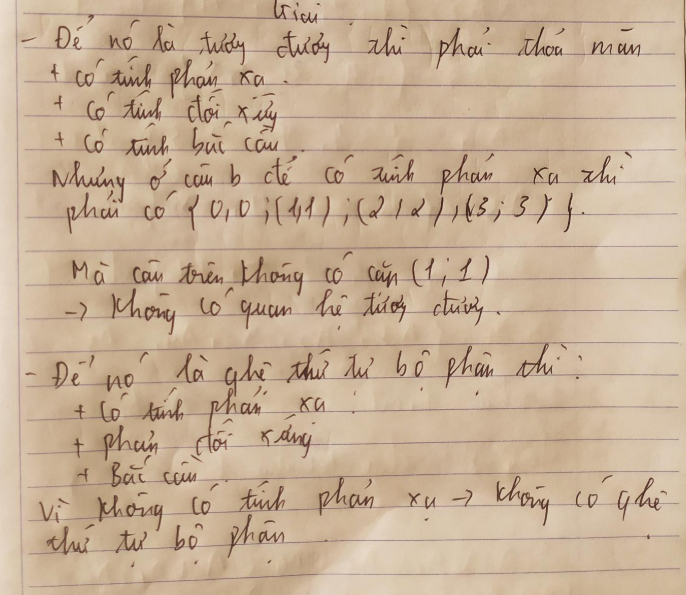 Giải
- Để nó là tương đương thì phải thoả mãn
+ có tính phản xạ.
+ có tính đối xứng
+ có tính bắc cầu.
Nhưng ở câu b để có tính phản xạ thì
phải có {0,0;(1,1);(2,2),(3;3)}.
Mà câu trên không có cặp (1;1)
-> Không có quan hệ tương đương.
- Để nó là qhệ thứ tự bộ phận thì:
+ Có tính phản xạ.
+ phản đối xứng
+ Bắc cầu.
Vì không có tính phản xạ -> không có qhệ
thứ tự bộ phận.